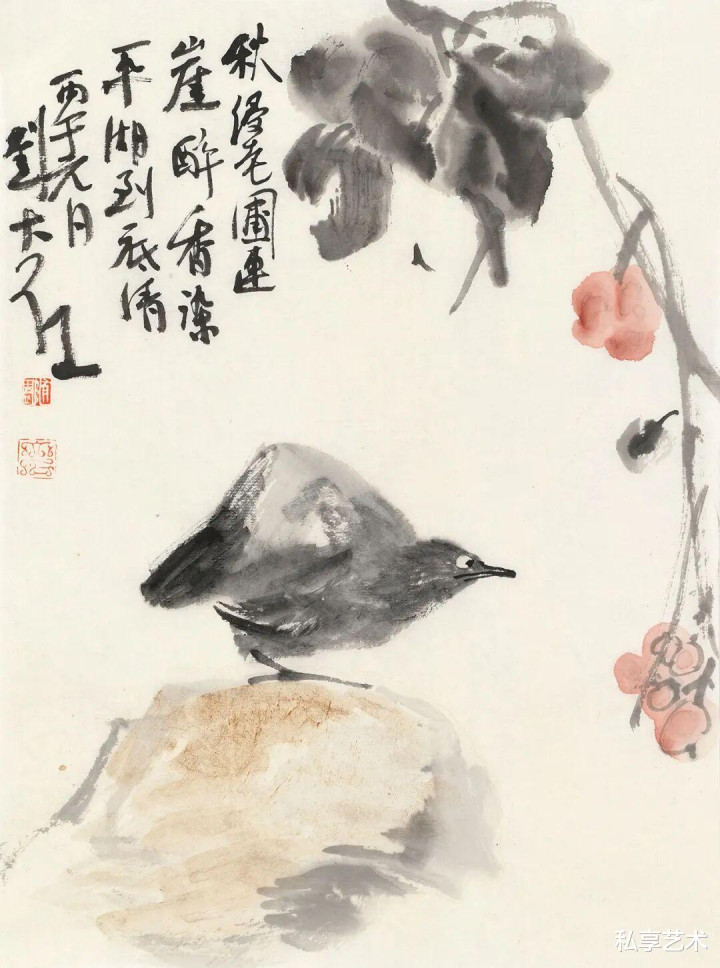 秋侵老圃連
崖醉香染
平湖到底清
丙子元月
劉大
私享艺术